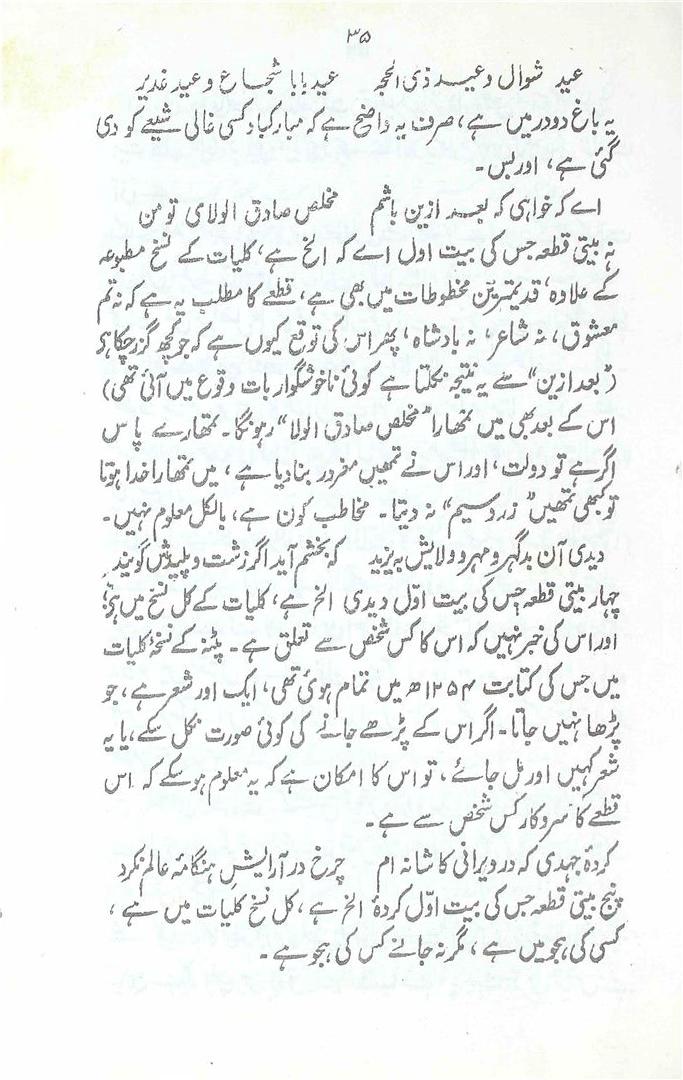 ۳۵
عید شوال و عید ذی الحجہ عید بابا شجاع و عید غدیر
یہ باغ دودر میں ہے، صرف یہ واضح ہے کہ مبارکباد کسی غالی شیعے کو دی
گئی ہے، اور بس۔
اے کہ خواہی کہ بعد ازین باشم مخلص صادق الولای تو من
نہ بیتی قطعہ جس کی بیت اول اے کہ الخ ہے، کلیات کے نسخ مطبوعہ
کے علاوہ، قدیمترین مخطوطات میں بھی ہے، قطعے کا مطلب یہ ہے کہ نہ تم
معشوق، نہ شاعر، نہ بادشاہ، پھر اس کی توقع کیوں ہے کہ جو کچھ گزر چکا ہی
("بعد ازین" سے یہ نتیجہ نکلتا ہے کوئی ناخوشگوار بات وقوع میں آئی تھی)
اس کے بعد بھی میں تمھارا "مخلص صادق الولا" رہونگا۔ تمھارے پاس
اگر ہے تو دولت، اور اس نے تمھیں مغرور بنا دیا ہے، میں تمھارا خدا ہوتا
تو کبھی تمھیں "زر و سیم" نہ دیتا۔ مخاطب کون ہے، بالکل معلوم نہیں۔
دیدی آن بدگہر و مہر و ولایش بہ یزید کہ بخشم آید اگر زشت و پلیدش گویند
چہار بیتی قطعہ جس کی بیت اوّل دیدی الخ ہے، کلیات کے کل نسخ میں ہی،
اور اس کی خبر نہیں کہ اس کا کس شخص سے تعلق ہے۔ پٹنہ کے نسخۂ کلیات
میں جس کی کتابت ۱۲۵۴ھ میں تمام ہوئی تھی، ایک اور شعر ہے، جو
پڑھا نہیں جاتا۔ اگر اس کے پڑھے جانے کی کوئی صورت نکل سکے، یا یہ
شعر کہیں اور مل جائے، تو اس کا امکان ہے کہ یہ معلوم ہو سکے کہ اس
قطعے کا سروکار کس شخص سے ہے۔
کردۂ جہدی کہ در ویرانی کاشانہ ام چرخ در آرایشِ ہنگامۂ عالم نکرد
پنج بیتی قطعہ جس کی بیت اوّل کردۂ الخ ہے، کل نسخ کلیات میں ہے،
کسی کی ہجو میں ہے، مگر نہ جانے کس کی ہجو ہے۔